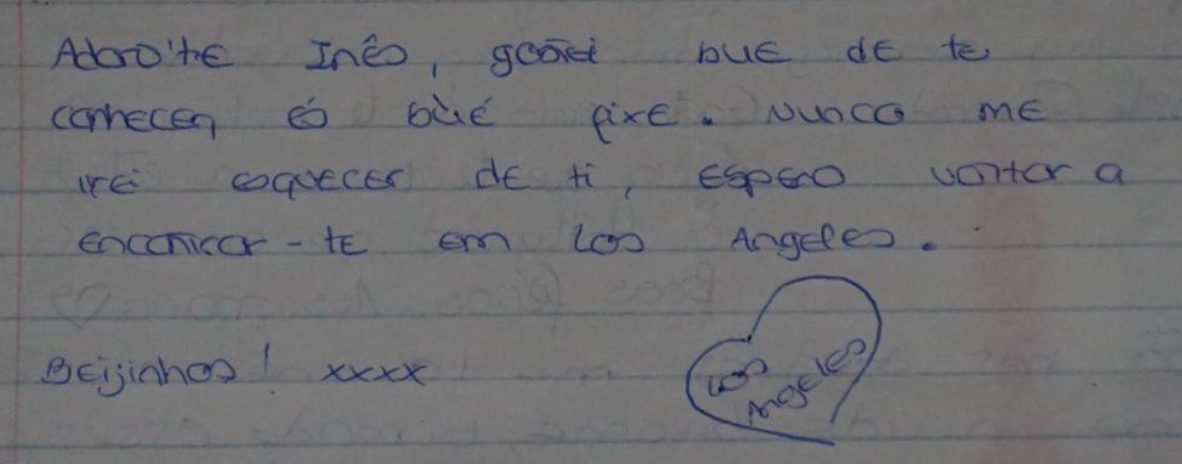 Adoro'te Inês, gostei bué de te
conhecer, és bué fixe. Nunca me
irei esquecer de ti, espero voltar a
encontrar-te em Los Angeles.
Beijinhos! xxxx
Los
Angeles